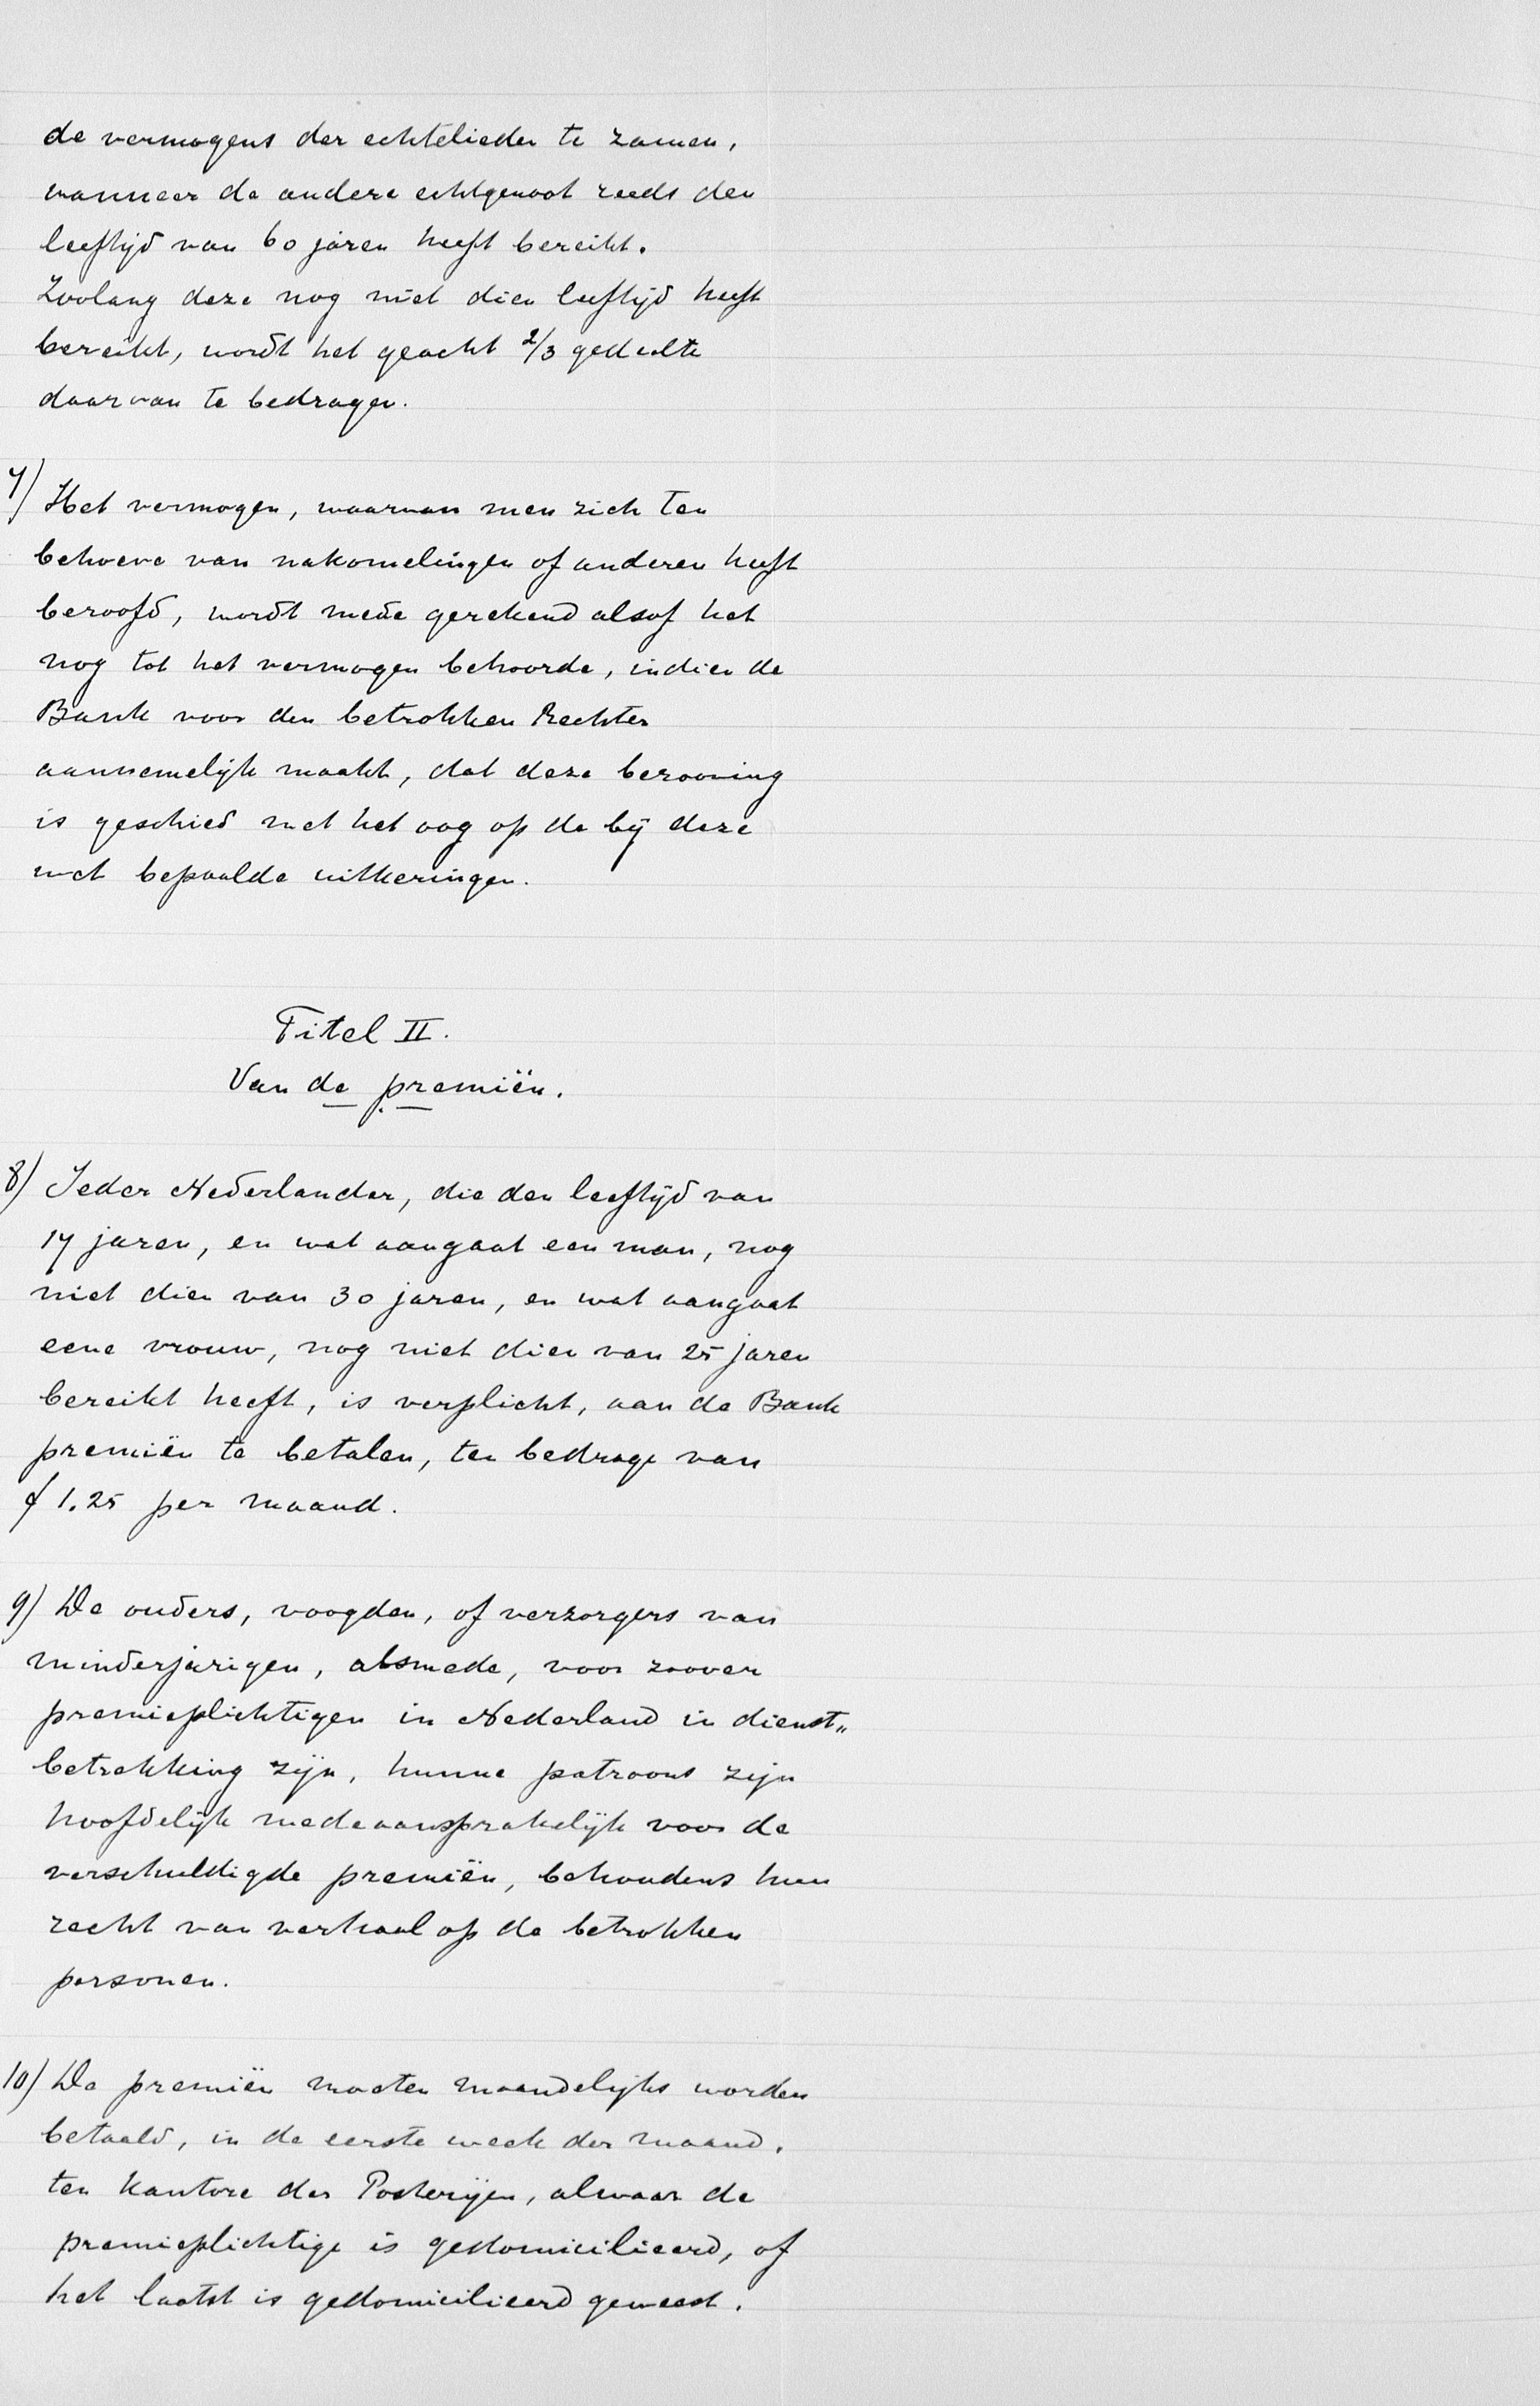 de vermogens der echtelieden te zamen,
wanneer de andere echtgenoot reeds den
leeftijd van 60 jaren heeft bereikt.
Zoolang deze nog niet dien leeftijd heeft
bereikt, wordt het geacht 2/3 gedeelte
daarvan te bedragen.
7) Het vermogen, waarvan men zich ten
behoeve van nakomelingen of anderen heeft
beroofd, wordt mede gerekend alsof het
nog tot het vermogen behoorde, indien de
Bank voor den betrokken Rechter
aannemelijk maakt, dat deze berooving
is geschied met het oog op de bij deze
wet bepaalde uitkeringen.
Titel II.
Van de premiën.
8) Ieder Nederlander, die den leeftijd van
17 jaren, en wat aangaat een man, nog
niet dien van 30 jaren, en wat aangaat
eene vrouw, nog niet dien van 25 jaren
bereikt heeft, is verplicht, aan de Bank
premiën te betalen, ten bedrage van
f 1.25 per maand.
9) De ouders, voogden, of verzorgers van
minderjarigen, alsmede, voor zoover
premieplichtigen in Nederland in dienst„
betrekking zijn, hunne patroons zijn
hoofdelijk medeaansprakelijk voor de
verschuldigde premiën, behoudens hun
recht van verhaal op de betrokken
personen.
10) De premiën moeten maandelijks worden
betaald, in de eerste week der maand,
ten kantore der Posterijen, alwaar de
premieplichtige is gedomicilieerd, of
het laatst is gedomicilieerd geweest.